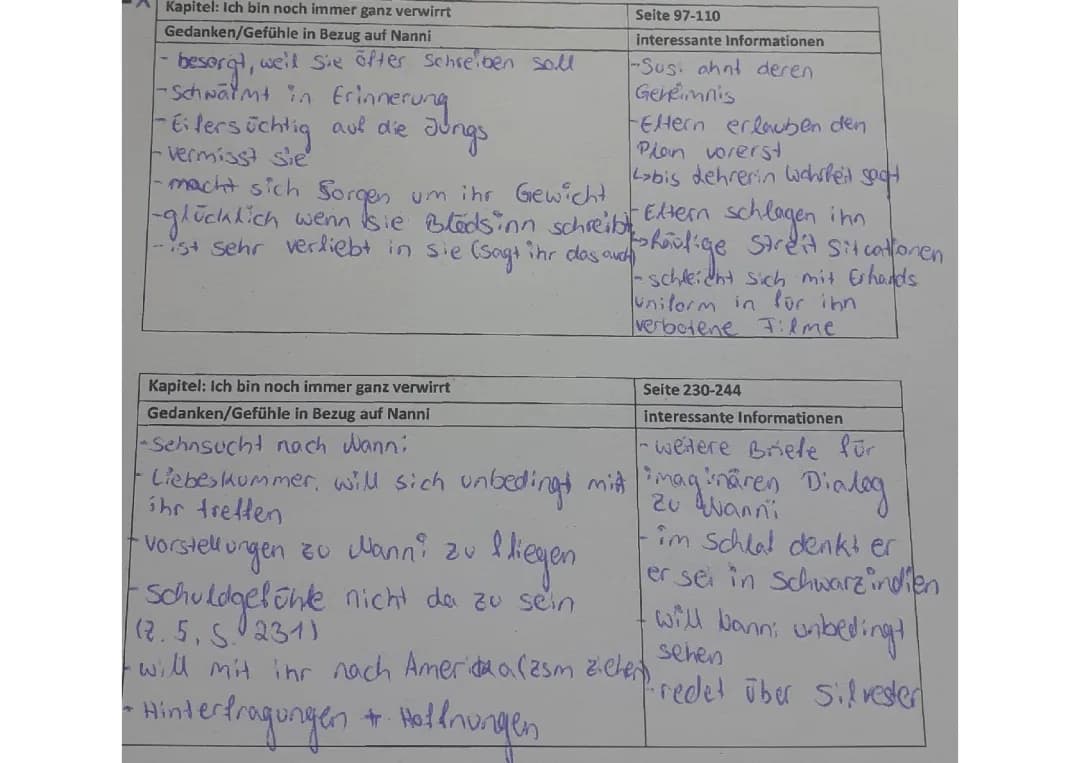 Kapitel: Ich bin noch immer ganz verwirrt
Seite 97-110
Gedanken/Gefühle in Bezug auf Nanni
interessante Informationen
- besorgt, weil sie öfter schreiben soll
- schwärmt in Erinnerung
- Eifersüchtig auf die Jungs
- vermisst sie
- macht sich Sorgen um ihr Gewicht
- glücklich wenn sie Blödsinn schreibt
- ist sehr verliebt in sie (sagt ihr das auch)
- Susi ahnt deren
Geheimnis
- Eltern erlauben den
Plan vorerst
↳ bis Lehrerin Wahrheit sagt
- Eltern schlagen ihn
↳ häufige Streit situationen
- schleicht sich mit Erhards
uniform in für ihn
verbotene Filme
Kapitel: Ich bin noch immer ganz verwirrt
Seite 230-244
Gedanken/Gefühle in Bezug auf Nanni
interessante Informationen
- Sehnsucht nach Nanni
- Liebeskummer, will sich unbedingt mit
ihr treffen
- vorstellungen zu Nanni zu fliegen
- Schuldgefühle nicht da zu sein
(Z. 5, S. 231)
- will mit ihr nach Amerika (zsm ziehen)
- Hinterfragungen + Hoffnungen
- weitere Briefe für
imaginären Dialog
zu Nanni
- im schlaf denkt er
er sei in Schwarzindien
- will Nanni unbedingt
sehen
- redet über Silvester